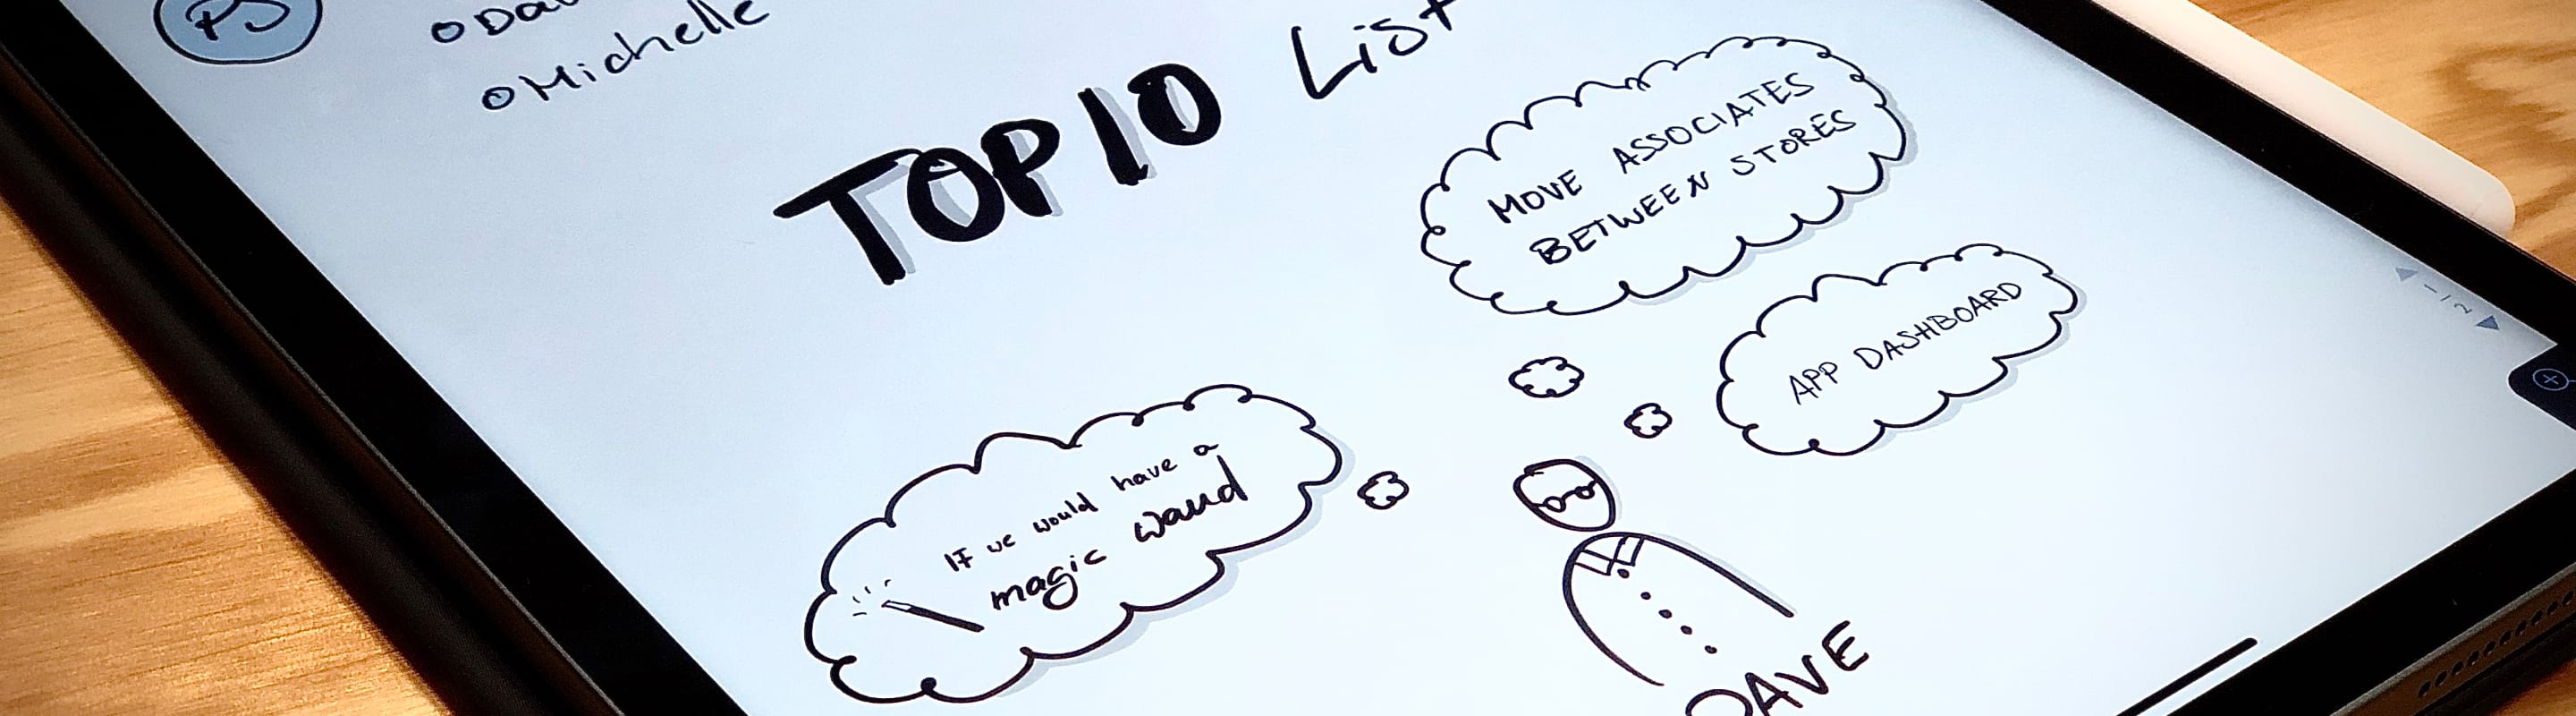 PS
Michelle
TOP 10 List
MOVE ASSOCIATES
BETWEEN STORES
APP DASHBOARD
1/2
If we would have a
magic wand
DAVE